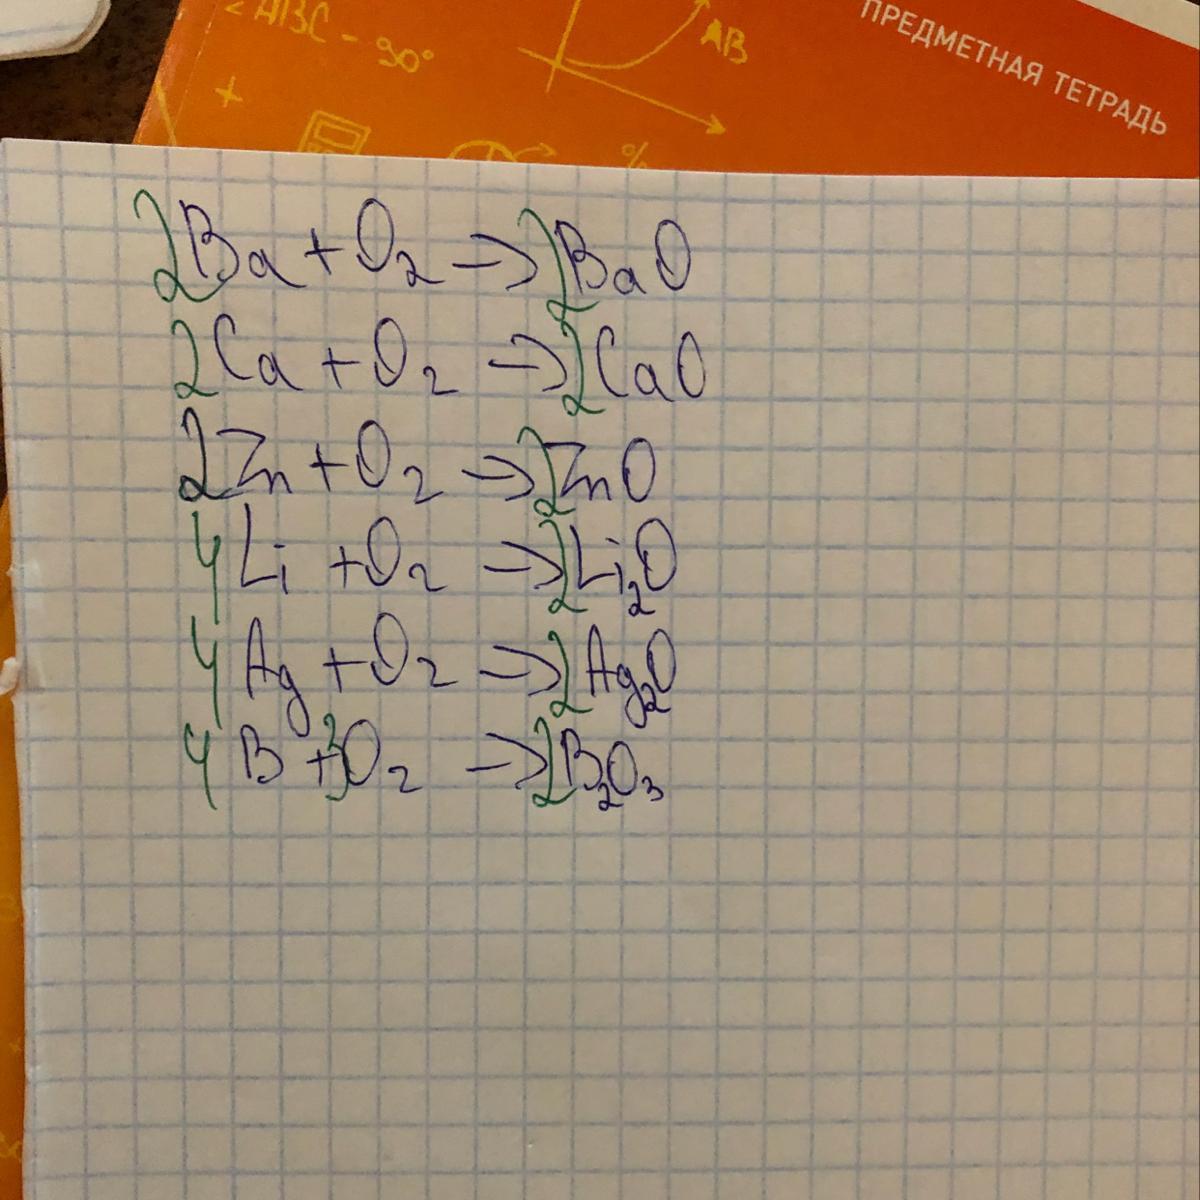 ∠ABC - 90°
AB
ПРЕДМЕТНАЯ ТЕТРАДЬ
+
%
2Ba + O₂ → 2BaO
2Ca + O₂ → 2CaO
2Zn + O₂ → 2ZnO
4Li + O₂ → 2Li₂O
4Ag + O₂ → 2Ag₂O
4B + 3O₂ → 2B₂O₃